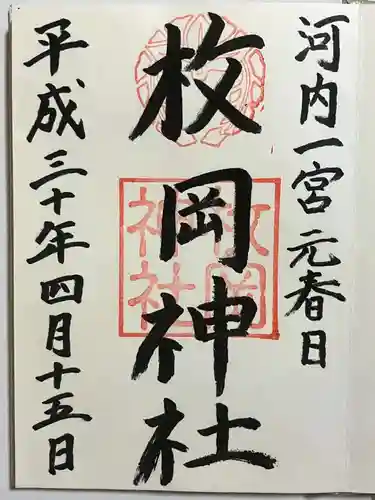 河内一宮元春日
枚岡神社
平成三十年四月十五日
枚岡
神社